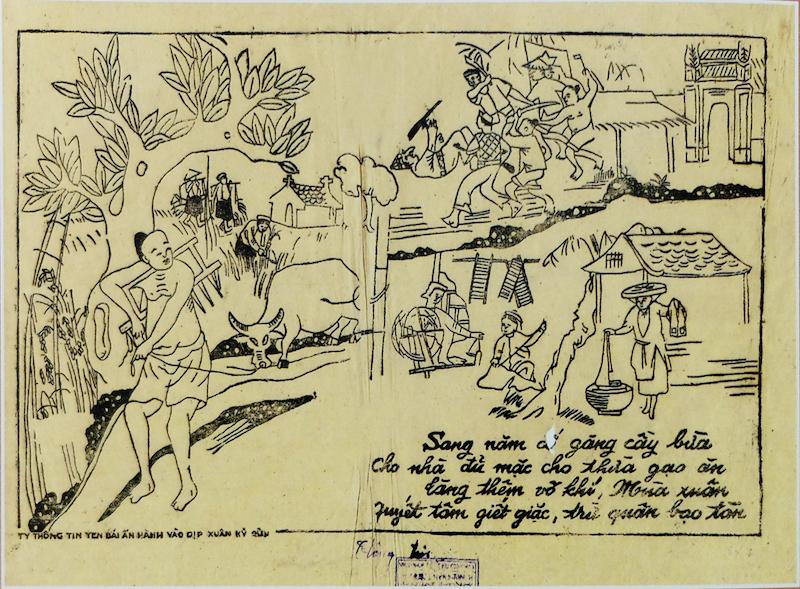 Sang năm cố gắng cày bừa
Cho nhà đủ mặc cho thừa gạo ăn
Tăng thêm võ khí, Mùa xuân
Quyết tâm giết giặc, trừ quân bạo tàn
TY THÔNG TIN YEN BÁI ẤN HÀNH VÀO DỊP XUÂN KỶ SỬU